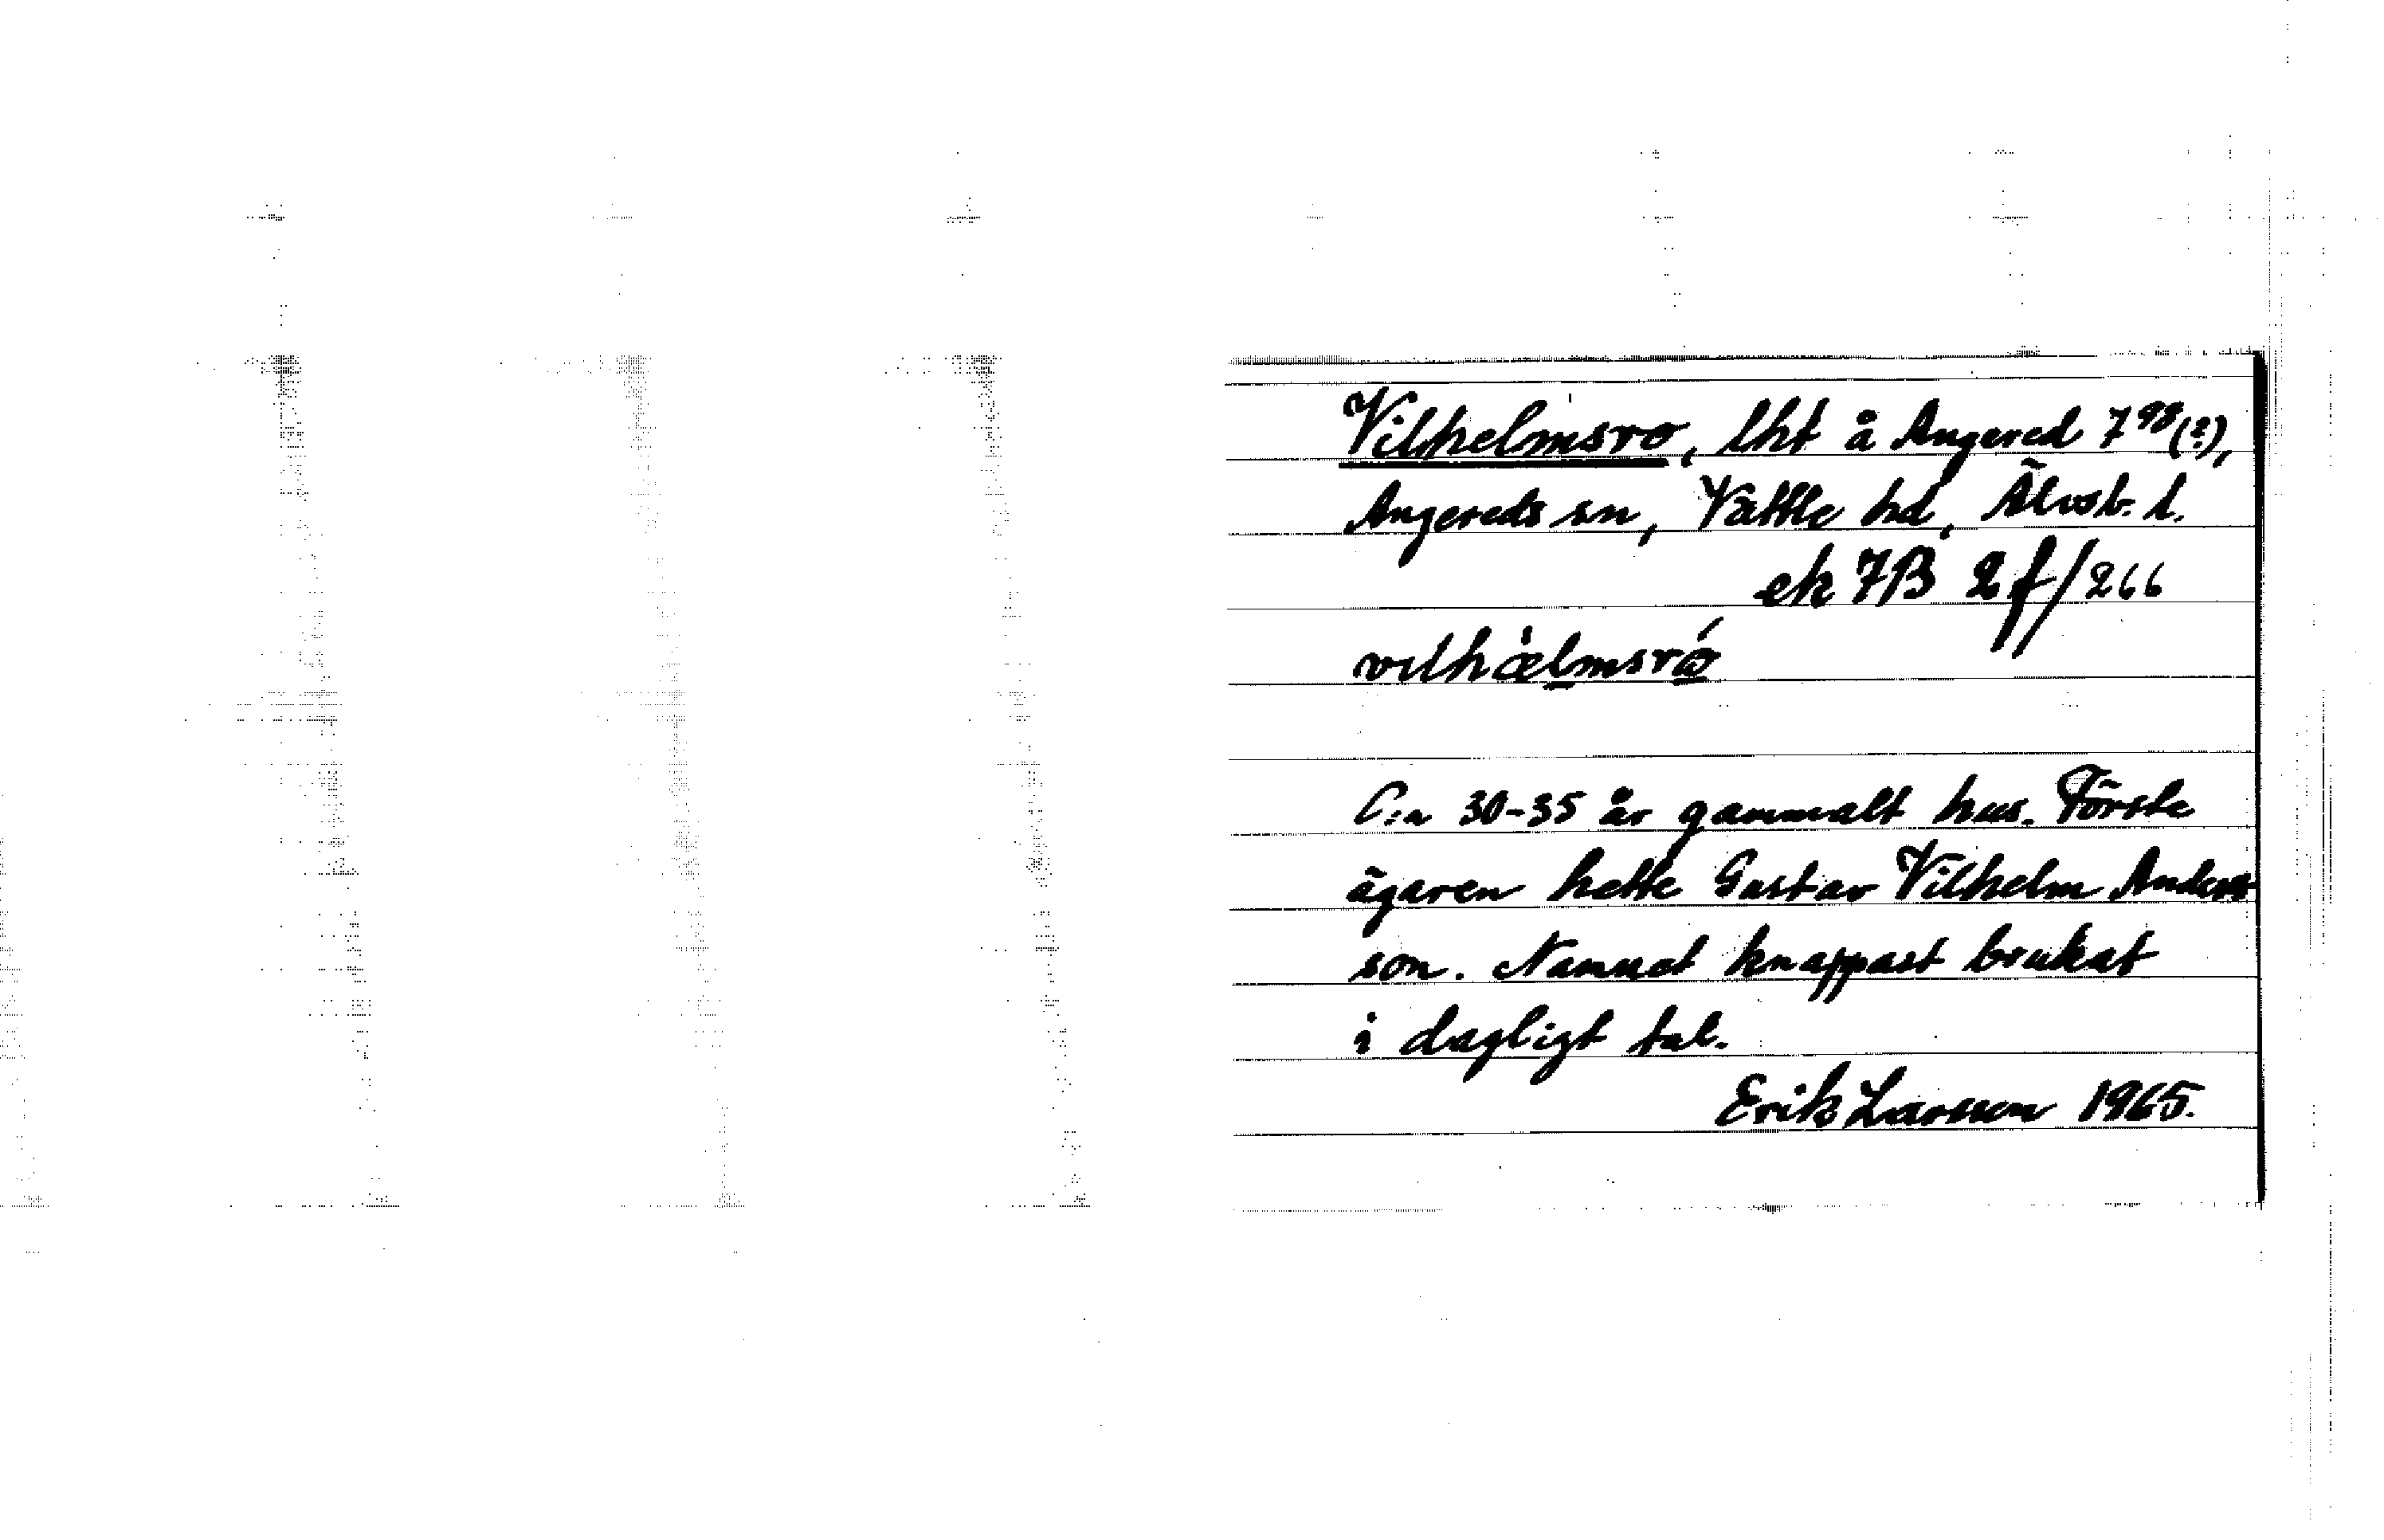 Vilhelmsro, lht å Angered 7⁹⁸(?),
Angereds sn, Vättle hd, Älvsb. l.
ek 7B 2f/266
vilhæ̀lmsró
C:a 30-35 år gammalt hus. Förste
ägaren hette Gustav Vilhelm Anders
son. Namnet knappast brukat
i dagligt tal.
Erik Larsson 1965.